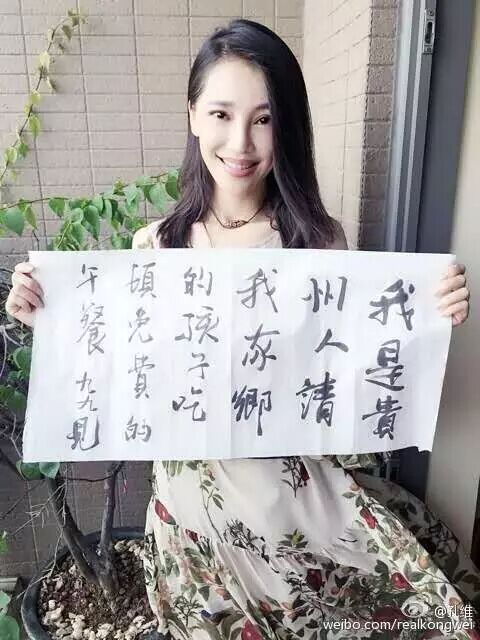 我是貴
州人請
我家鄉
的孩子吃
頓免費的
午餐九九見
@孔维
weibo.com/realkongwei